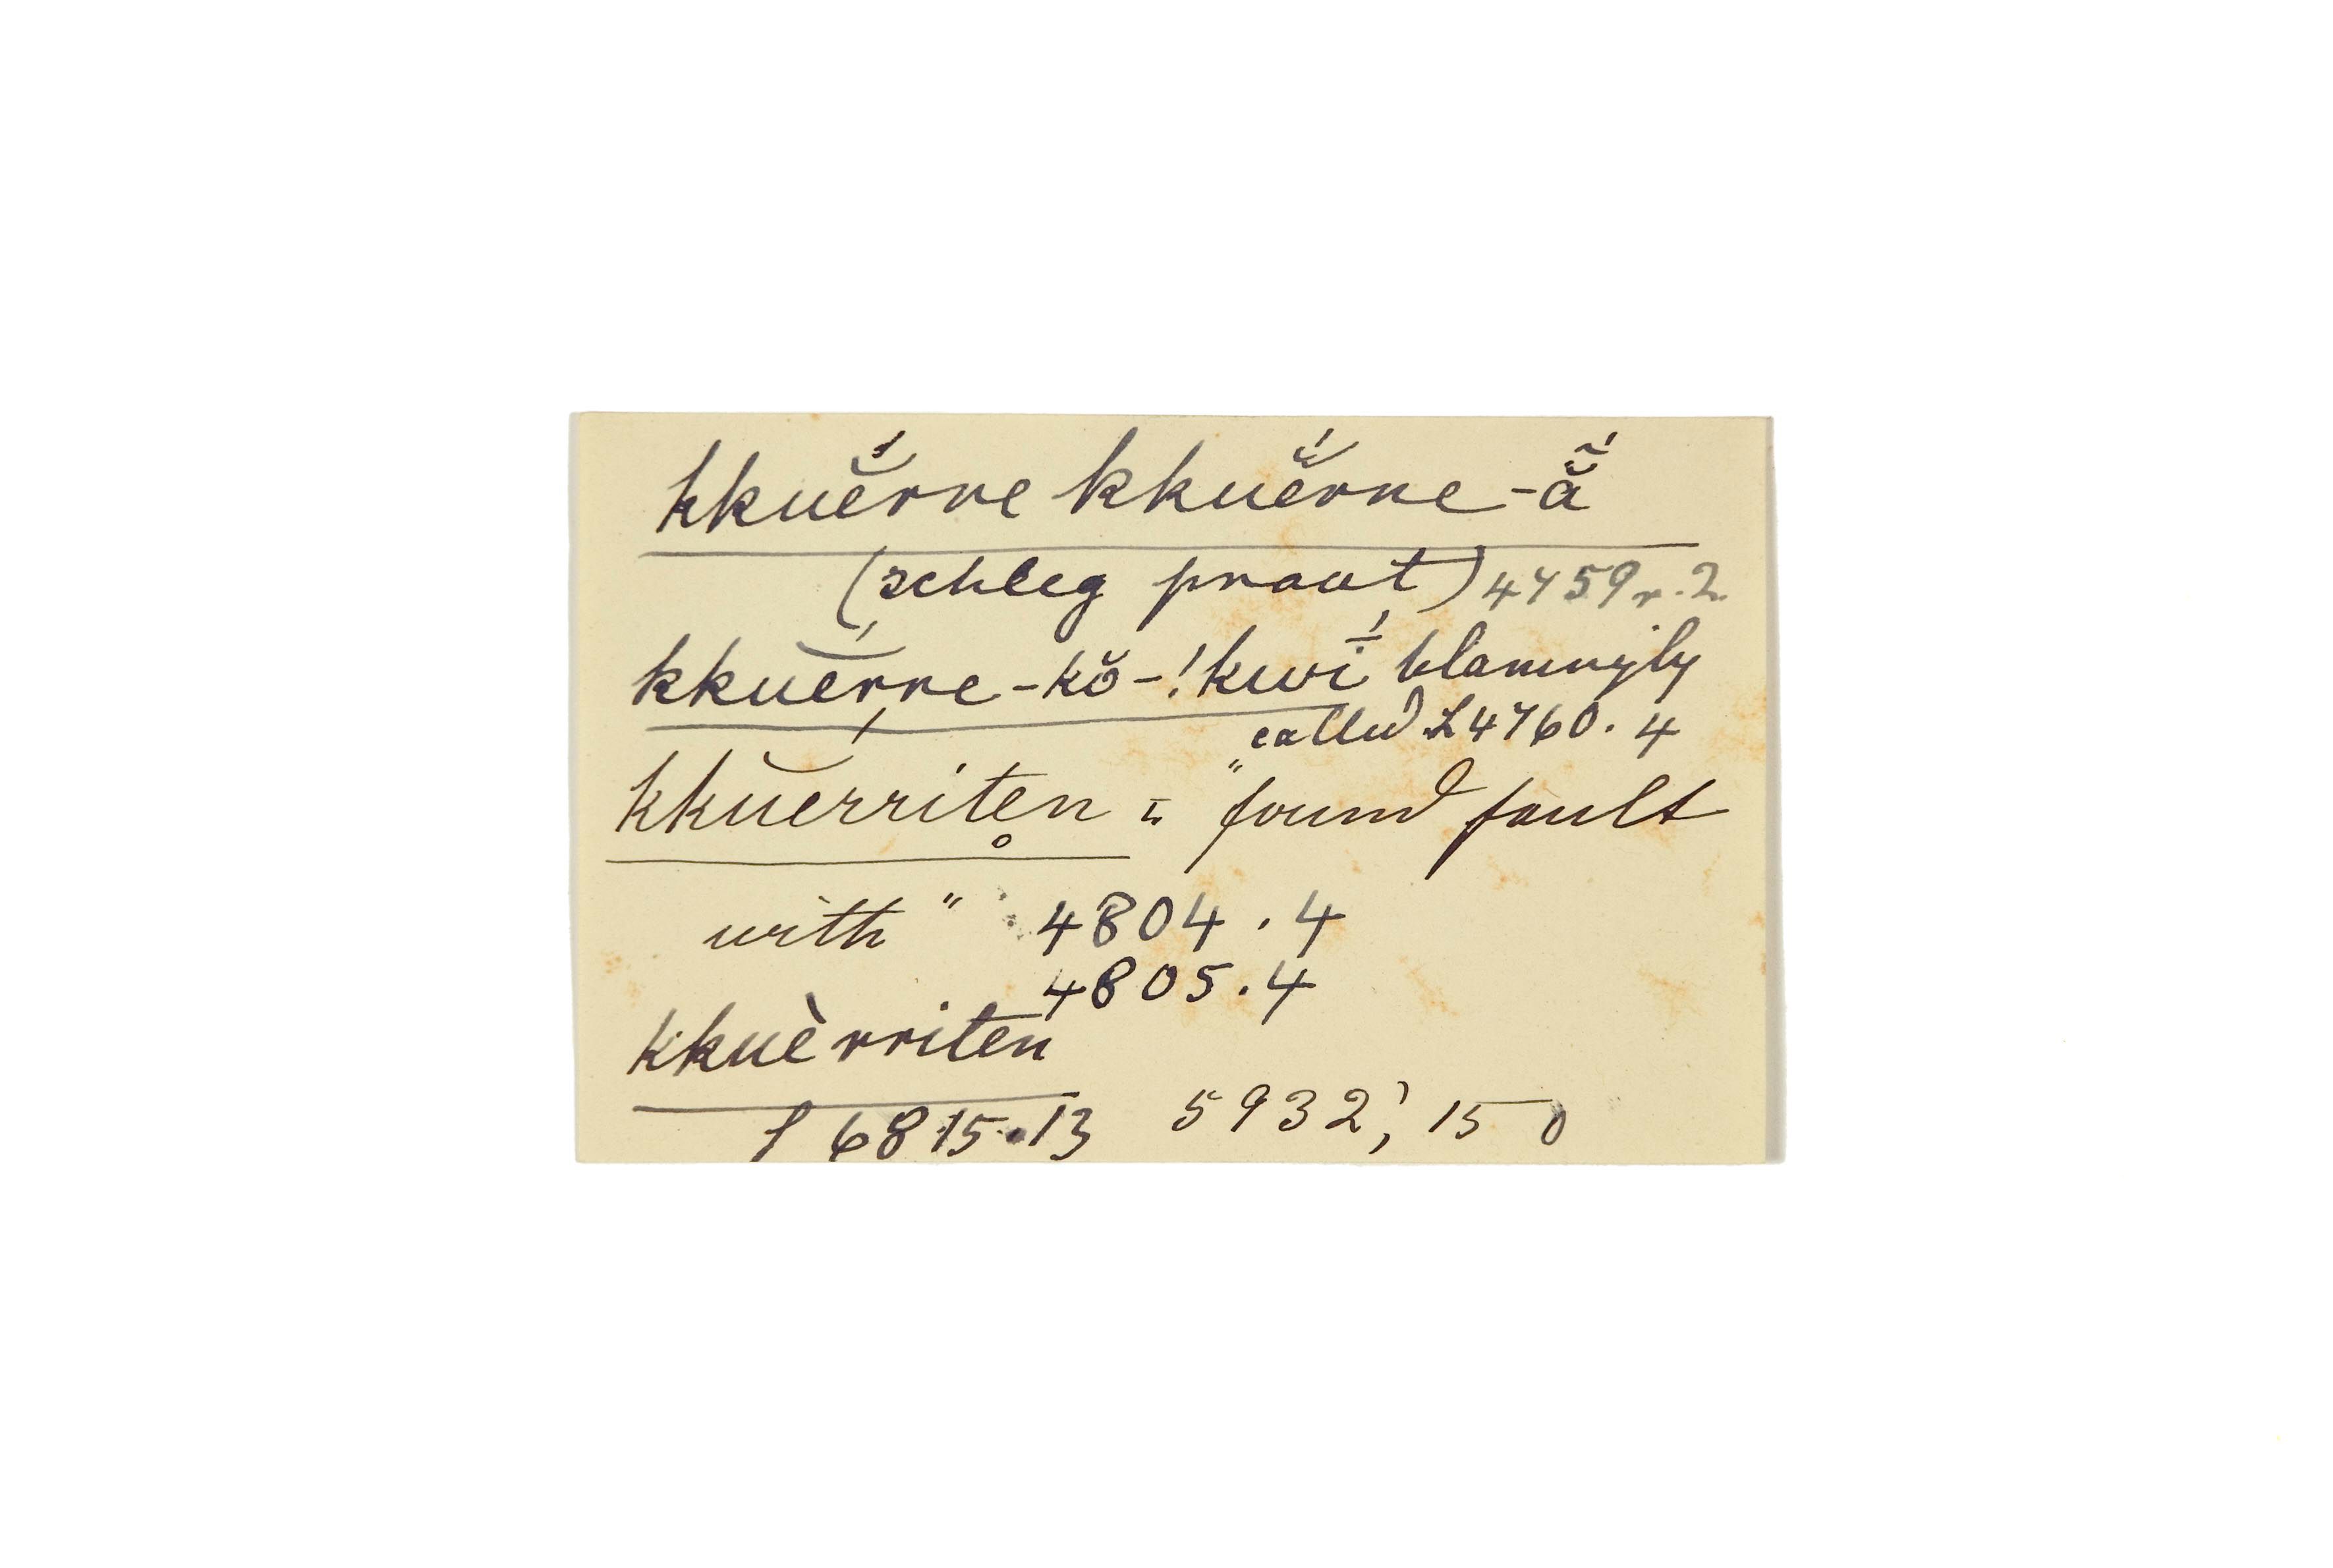 kkuĕ́rre kkuĕ́rre-ā̆́
(schleg praat) 4759 r. 2.
kkuĕ́rre-kŏ-!kwī́ blamingly
called L 4760. 4
kkuĕ́rriten̥ = "found fault
with" 4804. 4
4805. 4
kkuèrriten
6815.13 5932; 15